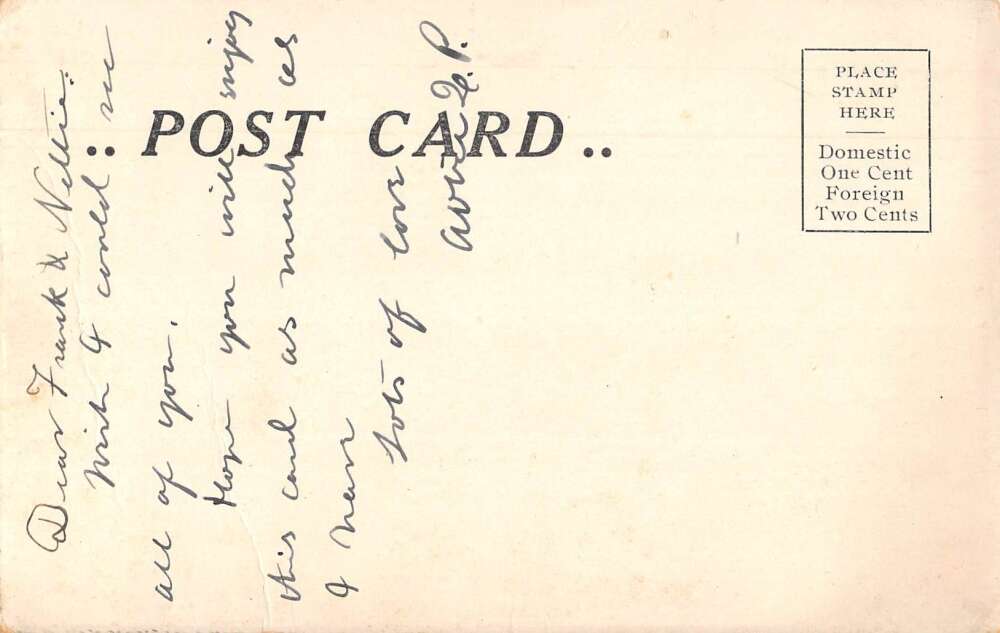 .. POST CARD ..
PLACE
STAMP
HERE
Domestic
One Cent
Foreign
Two Cents
Dear Frank & Nellie:
Wish I could see
all of you.
Hope you will enjoy
this card as much as
I have
Lots of love